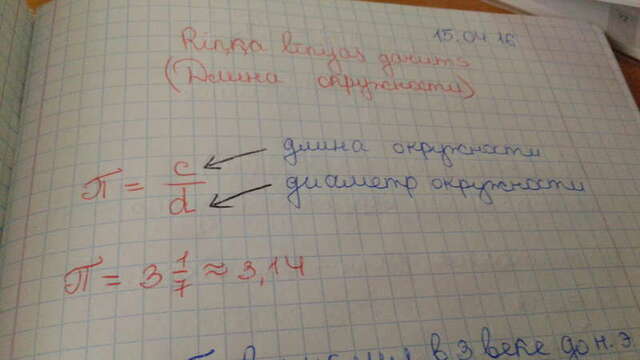 15.04.16
Riņķa līnijas garums
(Длина окружности)
π = c/d
длина окружности
диаметр окружности
π = 3 1/7 ≈ 3,14
в 3 веке до н.э